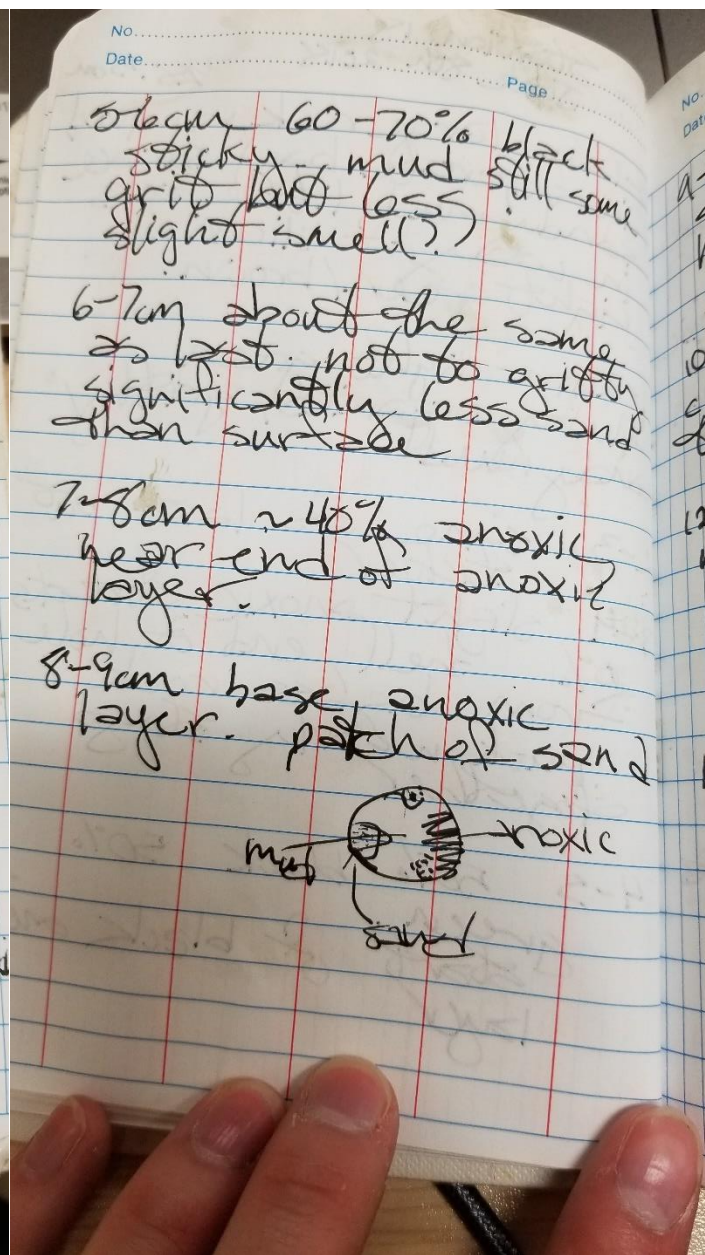 No.
Date
Page
5-6cm 60-70% black
sticky mud still some
grit but less
slight smell?
6-7cm about the same
as last. not to gritty
significantly less sand
than surface
7-8cm ~40% anoxic
near end of anoxic
layer.
8-9cm base anoxic
layer. patch of sand
mud
anoxic
sand
No.